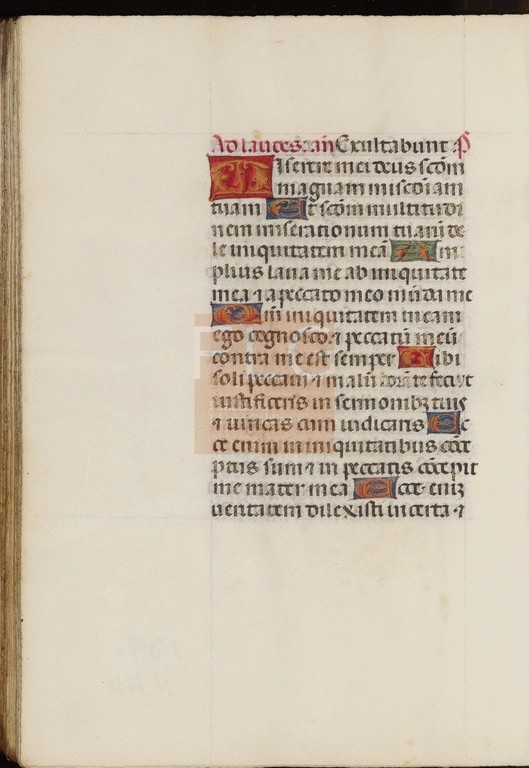 Ad laudes. an̄ Exultabunt P̄
Miserere mei deus scd̄m
magnam mis̄cdiam
tuam Et scd̄m multitudi
nem miserationum tuarū de
le iniquitatem meā Am
plius lava me ab iniquitate
mea ⁊ a peccato meo mūda me
Qm̄ iniquitatem meam
ego cognosco. ⁊ peccatū meū
contra me est semper Tibi
soli peccavi ⁊ malū corā te feci vt
iustificeris in sermonibꝫ tuis
⁊ vincas cum iudicaris Ec
ce enim in iniquitatibus cōce
ptus sum ⁊ in peccatis cōcepit
me mater mea Ecce eniꝫ
veritatem dilexisti incerta ⁊